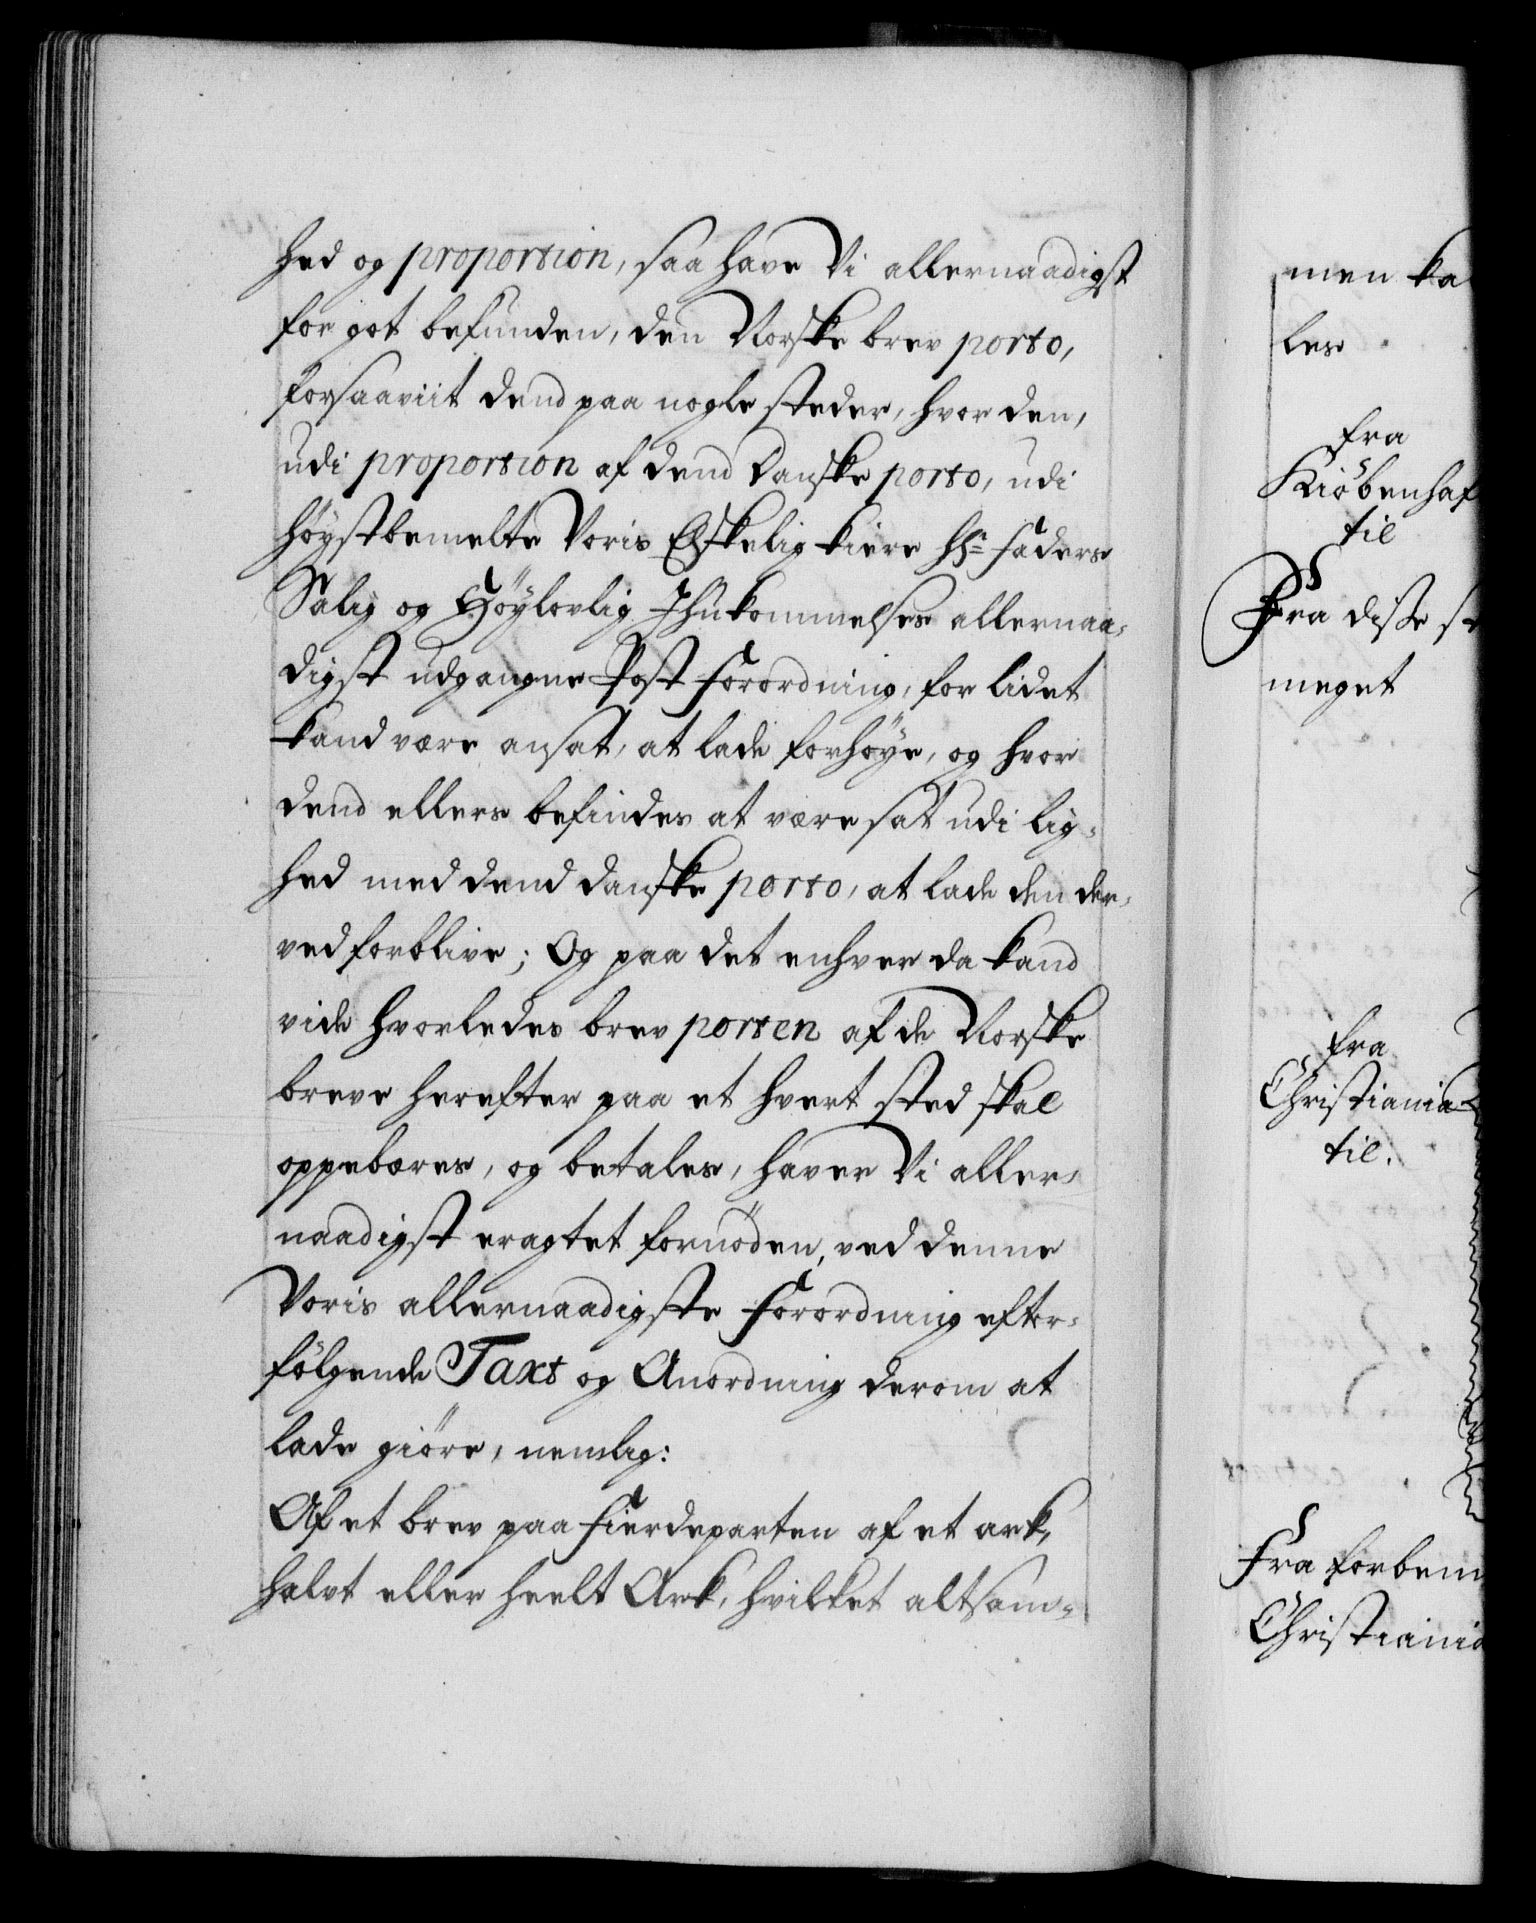 hed og proportion, saa have Vi allernaadigst
for got befunden, den Norske brev porto,
forsaaviit dend paa nogle steder, hvor den,
udi proportion af dend Danske porto, udi
höystbemelte Voris Elskelig kiere Hr Faders
Salig og Höylovlig Ihukommelses allernaa-
digst udgangne Post Forordning, for lidet
kand være ansat, at lade forhöye, og hvor
dend ellers befindes at være sat udi lig-
hed med dend danske porto, at lade den der-
ved forblive; Og paa det enhver da kand
vide hvorledes brev porten af de Norske
breve herefter paa et hvert sted skal
oppebæres, og betales, haver Vi aller-
naadigst eragtet fornöden, ved denne
Voris allernaadigste Forordning efter-
fölgende Taxt og Anordning derom at
lade giöre, nemlig:
Af et brev paa Fierdeparten af et ark,
halvt eller heelt Ark, hvilket altsam-
men ka
les
fra
Kiöbenhaf
til
Fra disse st
meget
fra
Christiania
til.
Fra forbem
Christiania